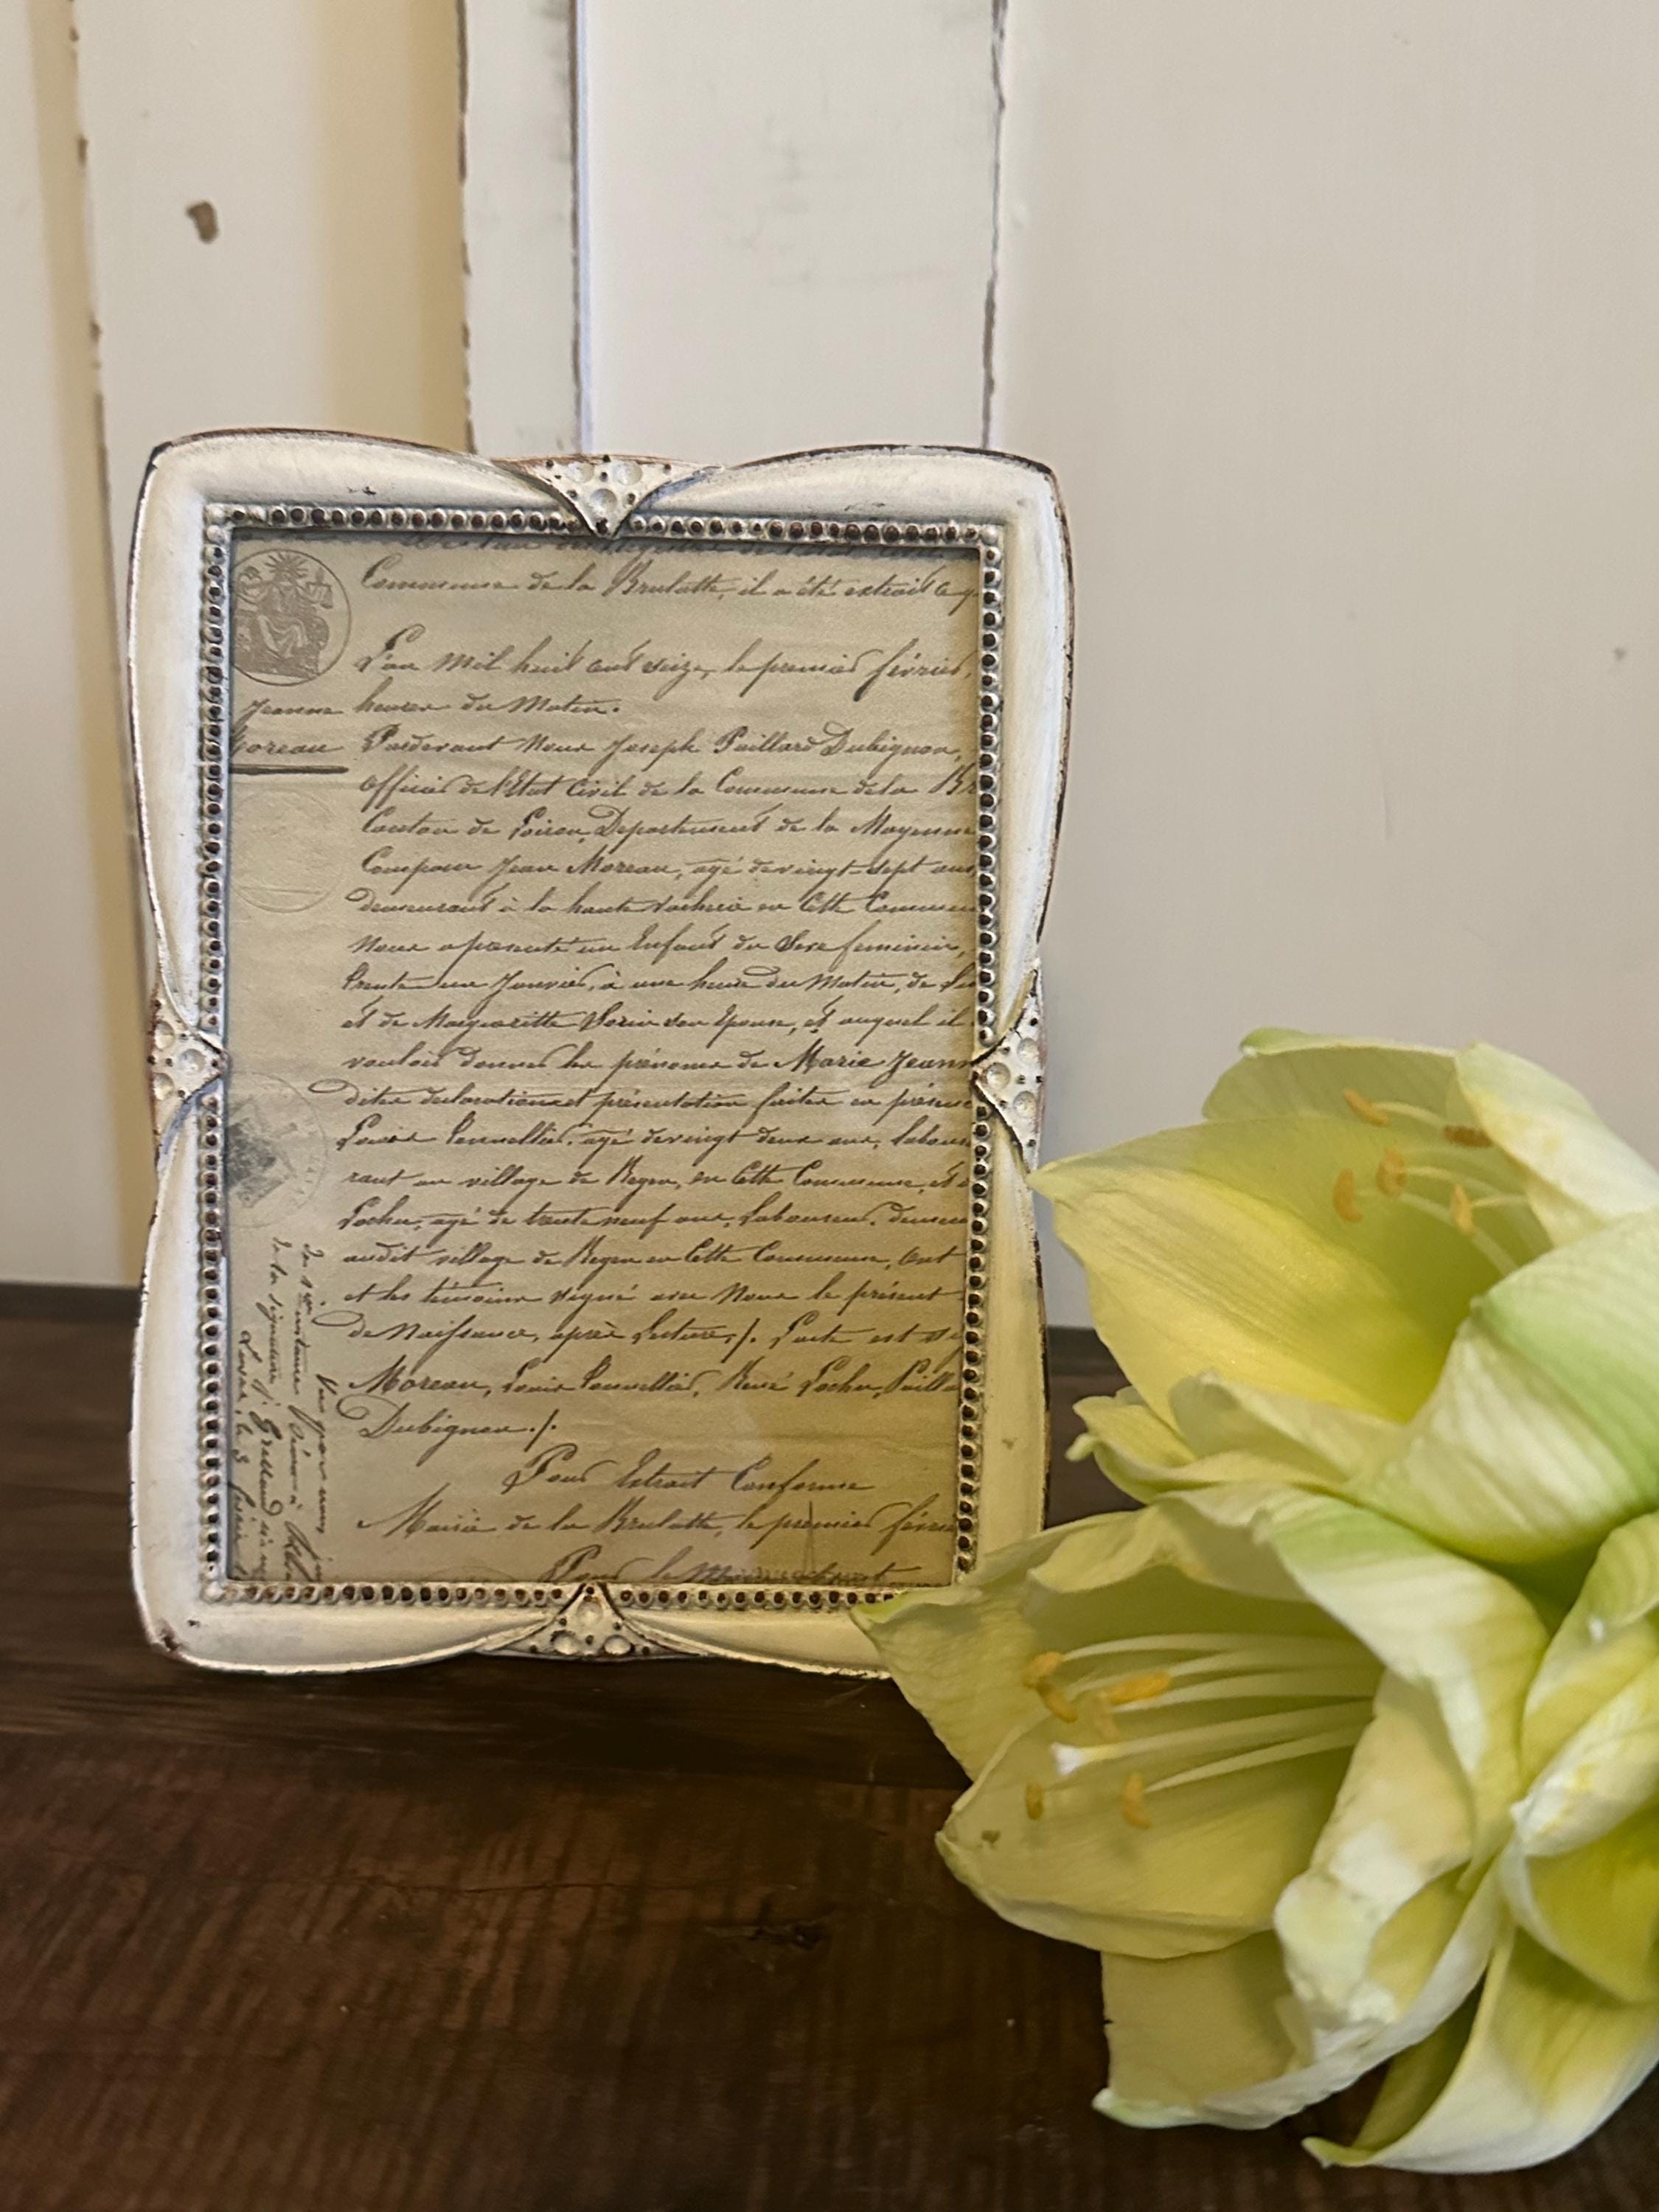 Commune de la Brulatte, il a été extrait ce q
L'an mil huit cent seize, le premier février,
Jeanne heures du Matin.
Moreau Pardevant Nous Joseph Paillard Dubignon,
officier de l'Etat Civil de la Commune de la Br
Canton de Loiron, Departement de la Mayenne
Comparu Jean Moreau, agé de vingt-sept ans,
demeurant à la haute Vacherie en Cette Commune
Nous a presenté un Enfant du Sexe feminin,
trente un Janvier, à une heure du Matin, de Lui
et de Margueritte son Epouse, et auquel il
vouloir donner les prénoms de Marie Jeanne
dites declaration et présentation faites en présence
Louis agé de vingt deux ans, labour
rant au village de en Cette Commune, et
agé de trente neuf ans, Laboureur, demeu
audit village de en Cette Commune, Ont
et les témoins signé avec Nous le présent
de Naissance, après Lecture./. L'acte est si
Moreau, Louis René Pailla
Dubignon./.
Pour Extrait Conforme
Mairie de la Brulatte, le premier févri
Pour le
Vu pour nous
de la signature